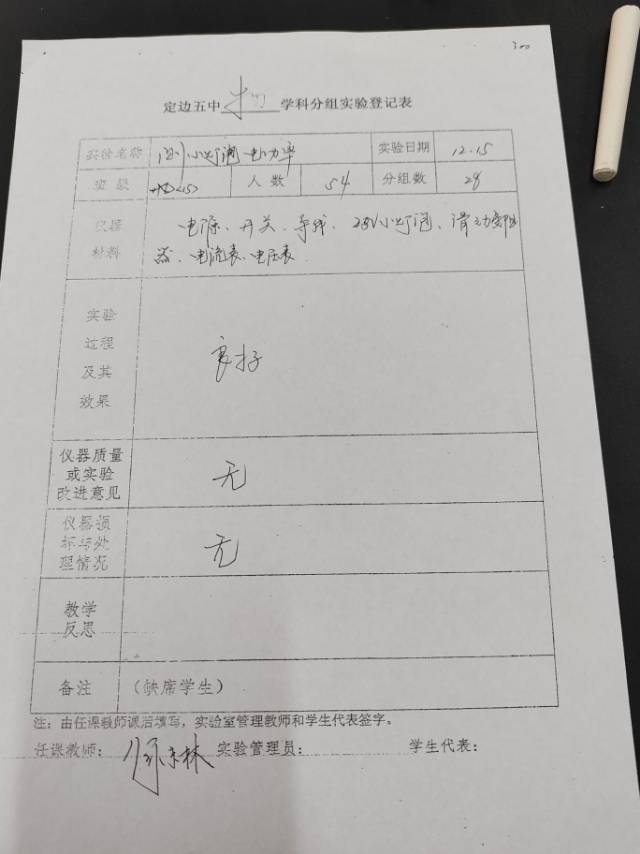 300
定边五中 物 学科分组实验登记表
实验名称 测小灯泡电功率 实验日期 12.15
班级 人数 54 分组数 28
仪器材料 电源、开关、导线、2.5V小灯泡、滑动变阻器、电流表、电压表
实验过程及其效果 良好
仪器质量或实验改进意见 无
仪器损坏与处理情况 无
教学反思
备注 (缺席学生)
注：由任课教师课后填写，实验室管理教师和学生代表签字。
任课教师： 实验管理员： 学生代表：